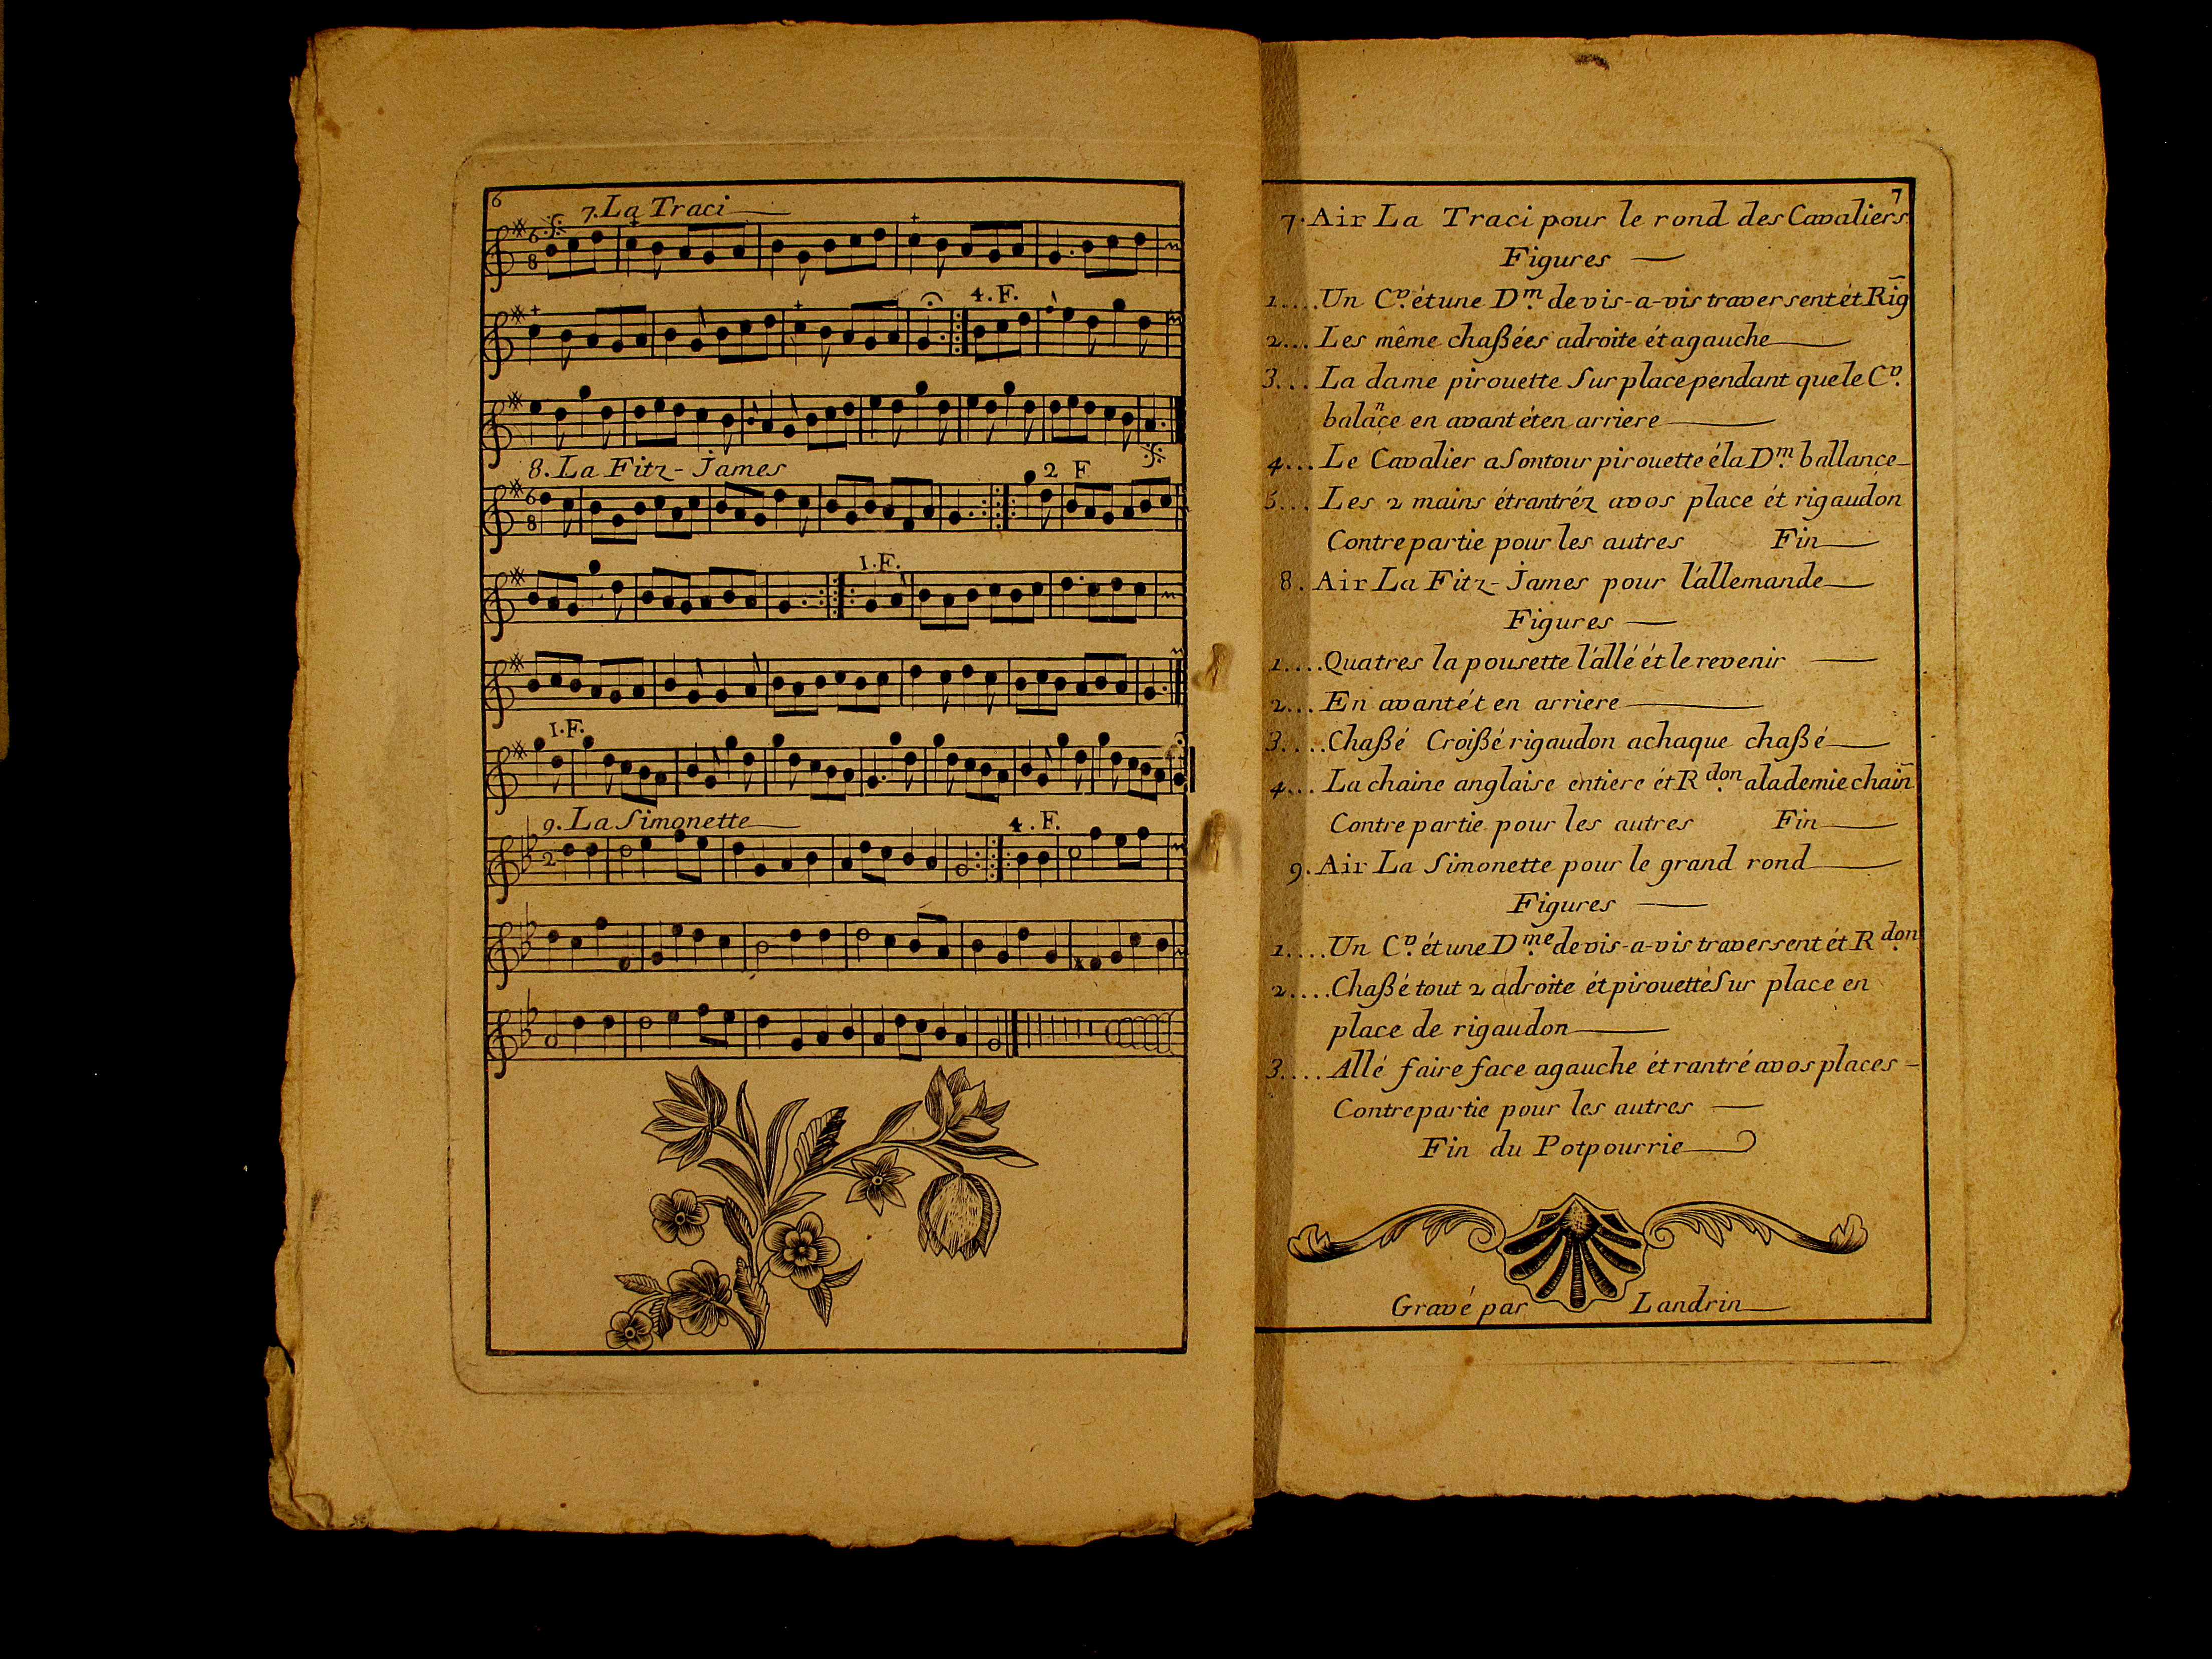 6
7. La Traci
4. F.
8. La Fitz-James
2 F
1. F.
1. F.
9. La Simonette
4. F.
7
7. Air La Traci pour le rond des Cavaliers
Figures
1.... Un Cv. ét une Dm. de vis-a-vis traversent ét Rig̃
2... Les même chaßées adroite ét agauche
3... La dame pirouette Sur place pendant que le Cv.
balance en avant ét en arriere
4... Le Cavalier a Son tour pirouette é la Dm. ballance
5... Les 2 mains ét rantréz a vos place ét rigaudon
Contre partie pour les autres Fin
8. Air La Fitz-James pour l'allemande
Figures
1.... Quatres la pousette l'allé ét le revenir
2... En avant ét en arriere
3.... Chaßé Croißé rigaudon achaque chaßé
4... La chaine anglaise entiere ét Rdon. alademie chaiñ
Contre partie pour les autres Fin
9. Air La Simonette pour le grand rond
Figures
1.... Un Cv. ét une Dme. de vis-a-vis traversent ét Rdon.
2.... Chaßé tout 2 adroite ét pirouetté Sur place en
place de rigaudon
3.... Allé faire face agauche ét rantré a vos places
Contre partie pour les autres
Fin du Potpourrie
Gravé par Landrin